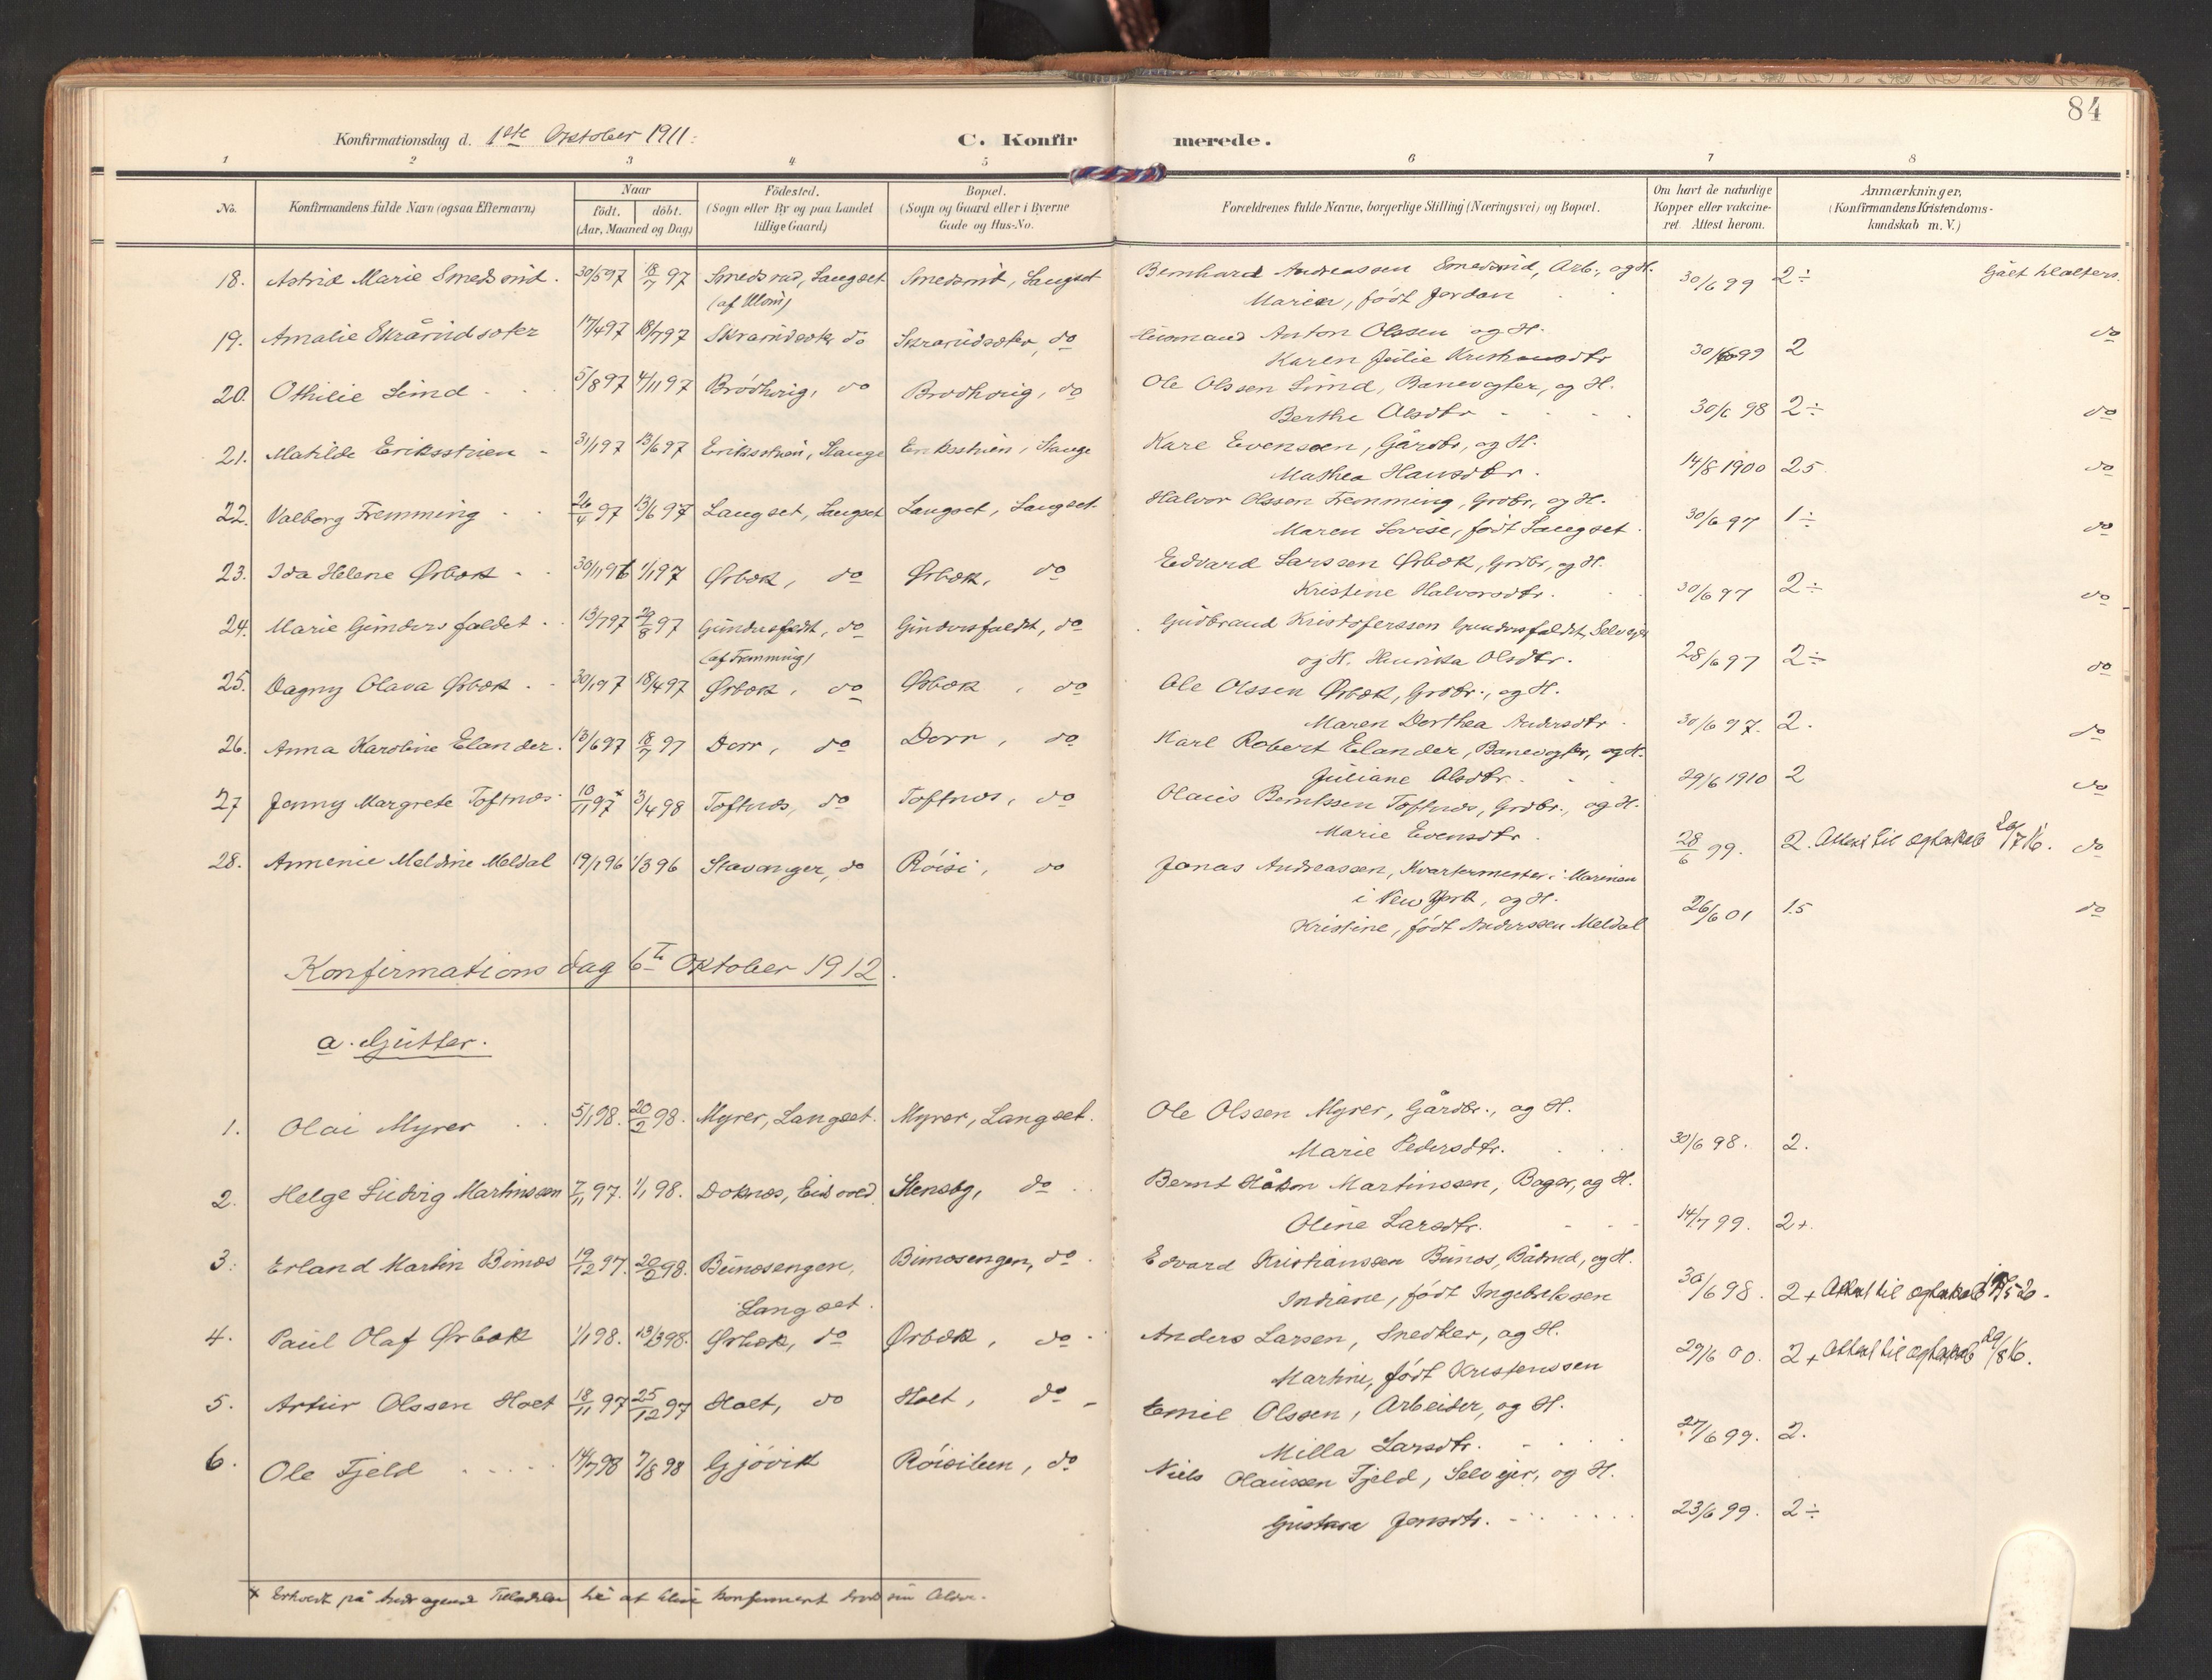 84
Konfirmationsdag d. 1ste Oktober 1911.
C. Konfirmerede.
1 2 3 4 5 6 7 8
No.
Konfirmandens fulde Navn (ogsaa Efternavn)
Naar
født. døbt.
(Aar, Maaned og Dag)
Födested.
(Sogn eller By og paa Landet
tillige Gaard)
Bopæl.
(Sogn og Gaard eller i Byerne
Gade og Hus-No.
Forældrenes fulde Navne, borgerlige Stilling (Næringsvei) og Bopæl.
Om havt de naturlige
Kopper eller vakcine-
ret. Attest herom.
Anmærkninger,
(Konfirmandens Kristendoms-
kundskab m. V.)
18. Astrid Marie Smedsrud. 30/5 97 18/7 97 Smedsrud, Langset Smedsrud, Langset Bernhard Andreassen Smedsrud, Arb., og H.
Maren, født Jordan 30/6 99 2÷
19. Amalie 17/4 97 18/7 97 do do Husmand Anton Olssen og H.
Karen Julie 99 2 do
20. Othilie Lund 5/8 97 4/11 97 Brödhvrig, do Brodhvrig, do Ole Olssen Lund, Banevogter, og H.
Berthe Olsdtr 30/6 98 2÷ do
21. Matilde Eriksstuen 31/1 97 13/6 97 Eriksstuen, Stange Eriksstuen, Stange Kare Evensen, Gårdbr, og H.
Mathea Hansdtr. 14/8 1900 25 do
22. Valborg Fremming 26/4 97 13/6 97 Langset, Langset Langset, Langset Halvor Olssen Fremming, Grdbr, og H.
Maren Lovise, født Langset 30/6 97 1÷ do
23. Ida Helene Ørbæk 30/11 96 1/1 97 Ørbæk, do Ørbæk, do Edvard Larssen Ørbæk, Grdbr, og H.
Kristine Halvorsdtr. 30/6 97 2÷ do
24. Marie Gundersfaldet 13/7 97 29/8 97 Gundersfaldt, do Gundersfaldt, do Gudbrand Kristofersson Gundersfaldet, Selvejer
og H. Henrika Olsdtr. 28/6 97 2÷ do
(af Fremming)
25. Dagny Olava Ørbæk 30/1 97 18/4 97 Ørbæk, do Ørbæk, do Ole Olssen Ørbæk, Grdbr., og H.
Maren Dorthea Andersdtr 30/6 97. 2. do
26. Anna Karoline Elander. 13/6 97 18/7 97 Dorr, do Dorr, do Karl Robert Elander, Banevogter, og H.
Juliane Olsdtr. 29/6 1910 2 do
27 Jenny Margrete Toftnæs 10/11 97 3/4 98 Toftnæs, do Toftnæs, do Olaus Berntssen Toftnæs, Grdbr., og H.
Marie Evensdtr. 28/6 99. 2. Attest til ægteskab 29/7 16. do
28. Armenie Meldine Meldal 19/1 96 1/3 96 Stavanger, do Röisi, do Jonas Andreassen, Kvartermester i Marinen
i New York, og H.
Kristine, født Anderssen Meldal 26/6 01 1.5 do
Konfirmationsdag 6te Oktober 1912.
a. Gutter.
1. Olai Myrer 5/1 98. 20/2 98. Myrer, Langset. Myrer, Langset. Ole Olssen Myrer, Gårdbr., og H.
Marie Pedersdtr. 30/6 98. 2.
2. Helge Ludvig Martinssen 7/11 97. 1/1 98. Doknæs, Eidsvold Stensby, do Bernt Håkon Martinssen, Bager, og H.
Oline Larsdtr. 14/7 99. 2+.
3. Erland Martin Bunæs 19/12 97. 20/2 98. Bunæsengen,
Langset. Bunæsengen, do Edvard Kristianssen Bunæs, og H.
Indiane, født Ingebrktsen 30/6 98. 2+ Attest til ægteskab
4. Paul Olaf Ørbæk 1/1 98. 13/3 98. Ørbæk, do Ørbæk, do Anders Larsen, Snedker, og H.
Martine, født Kristenssen 29/6 00. 2+ Attest til ægteskab 29/8 16.
5. Artur Olssen Holt 18/11 97 25/12 97 Holt, do Holt, do Emil Olssen, Arbeider, og H.
Milla Larsdtr. 27/6 99. 2.
6. Ole Fjeld 14/7 98 7/8 98 Gjövik Röisituen, do Niels Olaussen Fjeld, Selvejer, og H.
Gustava Jensdtr. 23/6 99. 2÷
at blive konfirmeret